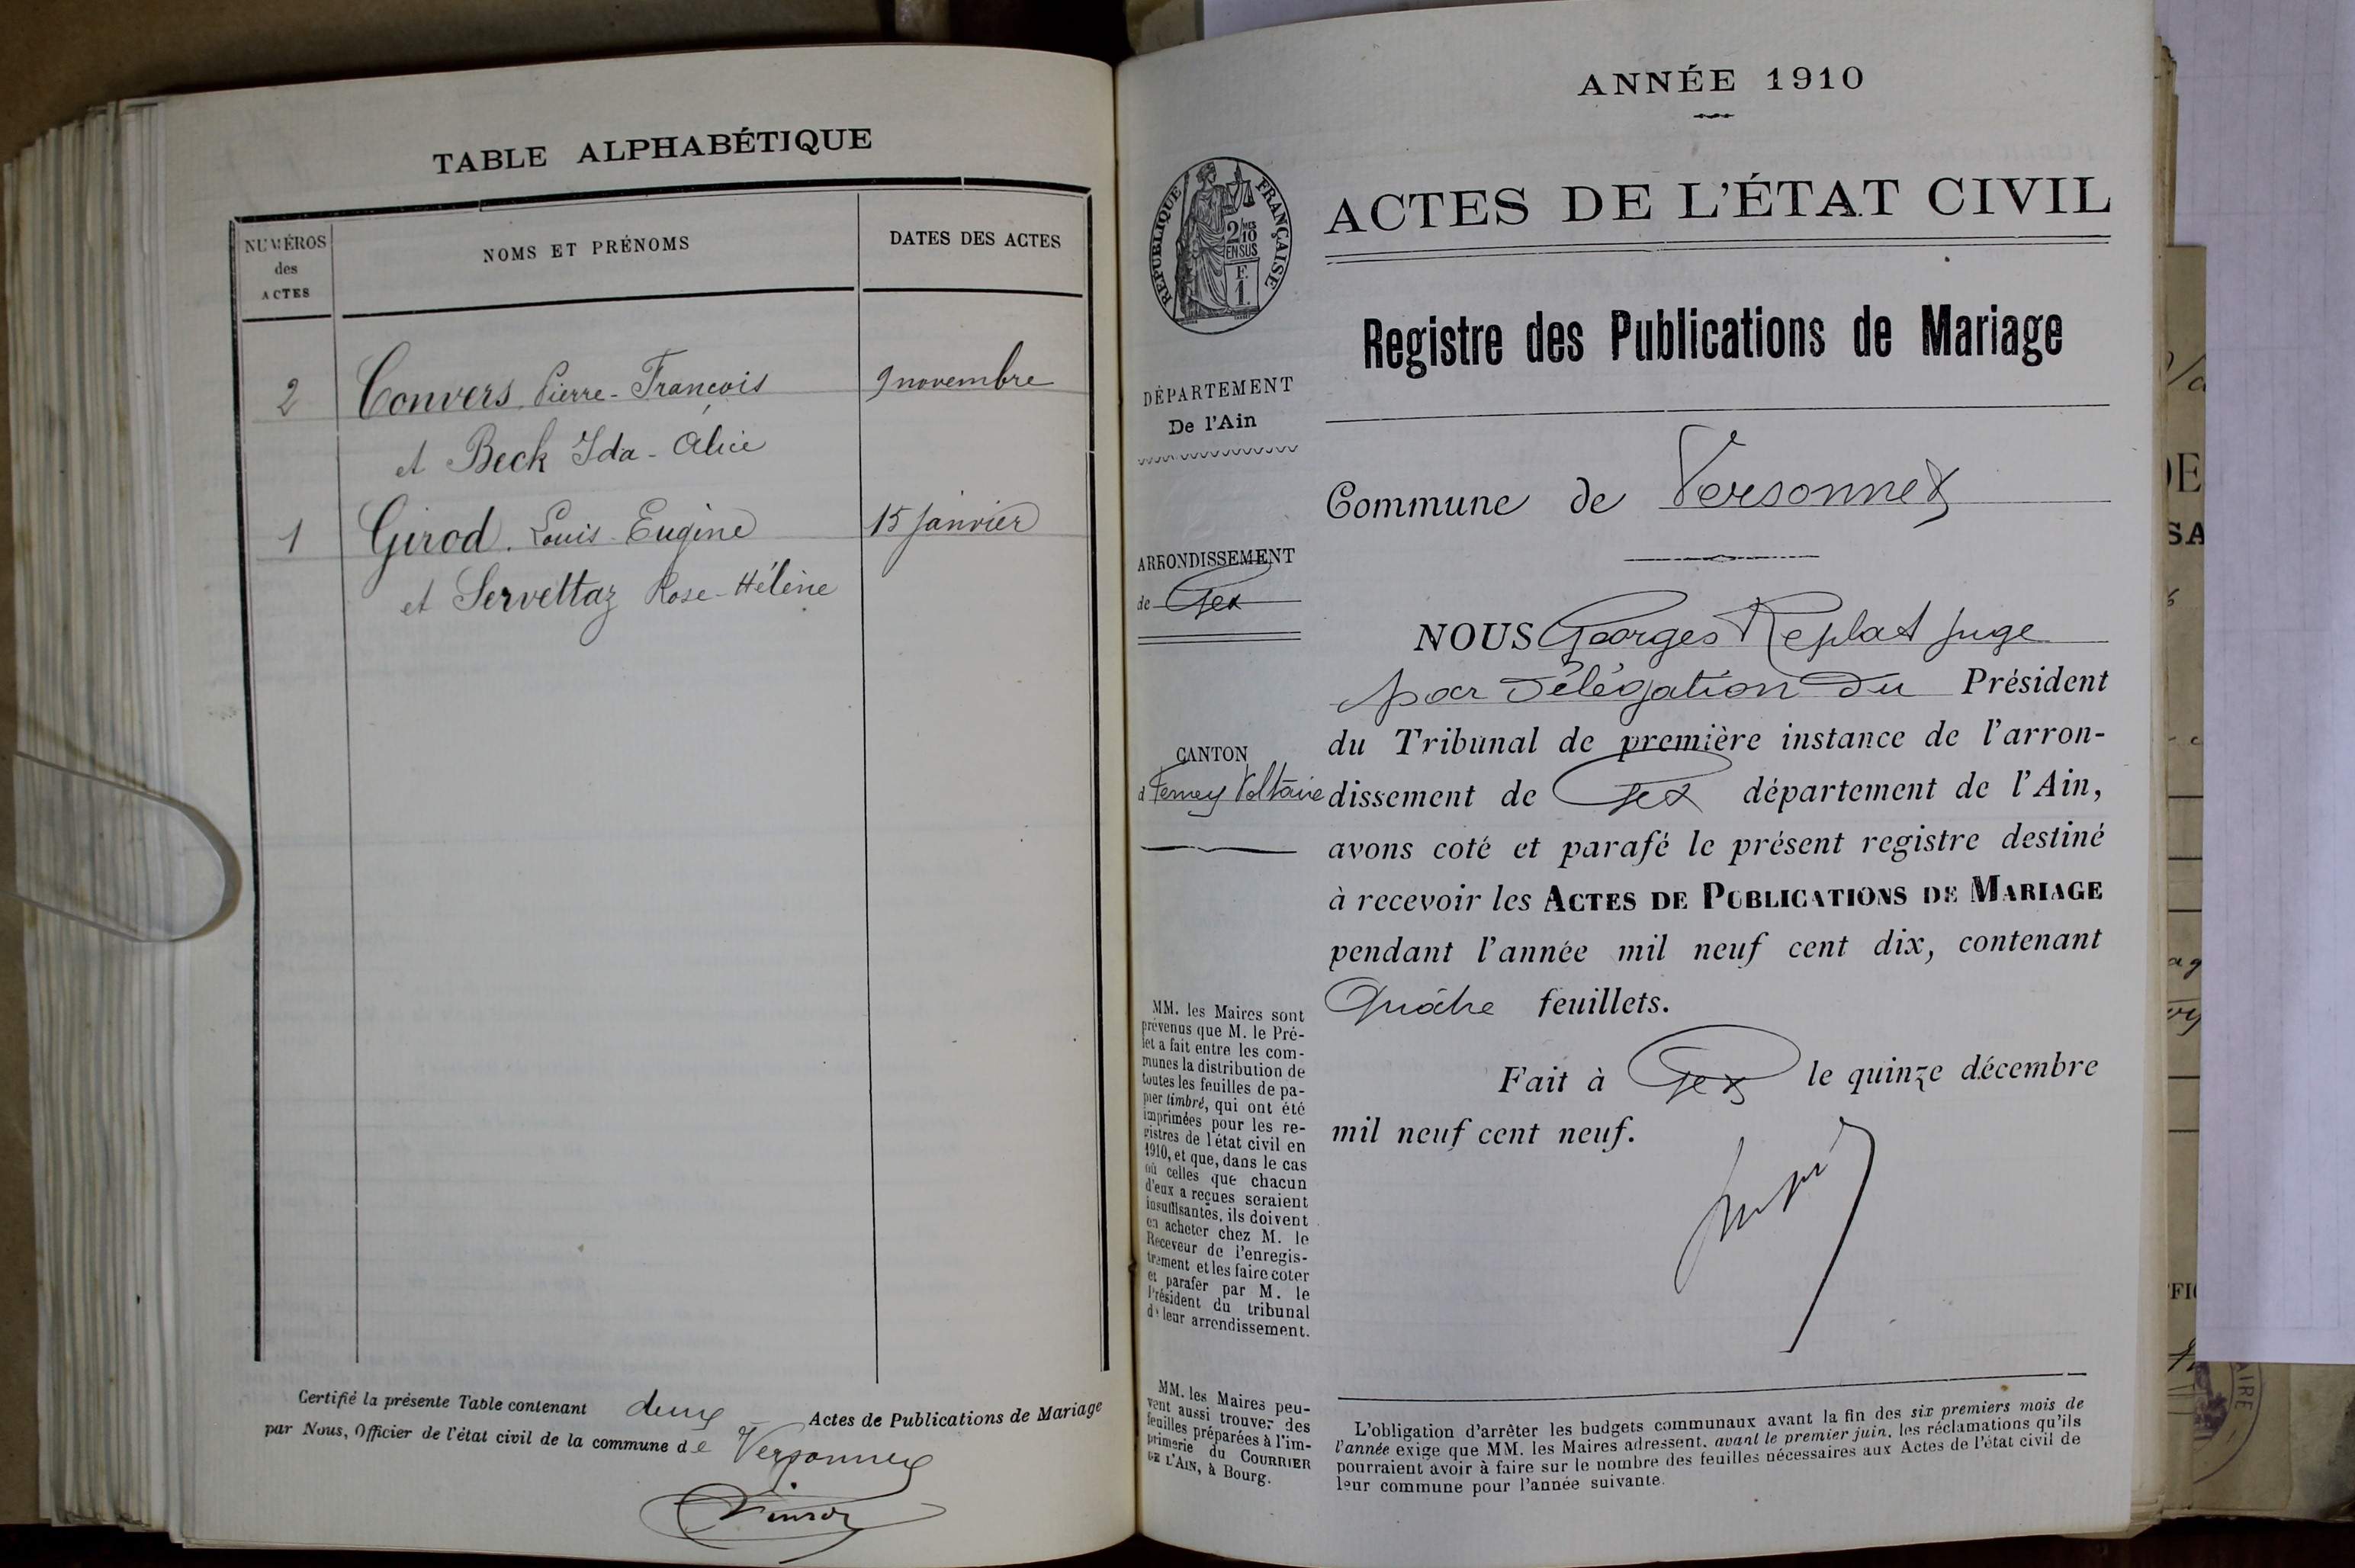 TABLE ALPHABÉTIQUE
NUMÉROS
des
ACTES
NOMS ET PRÉNOMS
DATES DES ACTES
2
Convers Pierre-François
9 novembre
et Beck Ida-Alice
1
Girod Louis-Eugène
15 janvier
et Servettaz Rose-Hélène
Certifié la présente Table contenant deux Actes de Publications de Mariage
par Nous, Officier de l'état civil de la commune de Versonnex
ANNÉE 1910
RÉPUBLIQUE FRANÇAISE
2/10 MES
EN SUS
F.
1.
ACTES DE L'ÉTAT CIVIL
Registre des Publications de Mariage
DÉPARTEMENT
De l'Ain
Commune de Versonnex
ARRONDISSEMENT
de Gex
CANTON
d Ferney Voltaire
NOUS Georges Replat juge
par délégation du Président
du Tribunal de première instance de l'arron-
dissement de Gex département de l'Ain,
avons coté et parafé le présent registre destiné
à recevoir les ACTES DE PUBLICATIONS DE MARIAGE
pendant l'année mil neuf cent dix, contenant
Quatre feuillets.
Fait à Gex le quinze décembre
mil neuf cent neuf.
MM. les Maires sont
prévenus que M. le Pré-
fet a fait entre les com-
munes la distribution de
toutes les feuilles de pa-
pier timbré, qui ont été
imprimées pour les re-
gistres de l'état civil en
1910, et que, dans le cas
où celles que chacun
d'eux a reçues seraient
insuffisantes, ils doivent
en acheter chez M. le
Receveur de l'enregis-
trement et les faire coter
et parafer par M. le
Président du tribunal
de leur arrondissement.
MM. les Maires peu-
vent aussi trouver des
feuilles préparées à l'im-
primerie du COURRIER
DE L'AIN, à Bourg.
L'obligation d'arrêter les budgets communaux avant la fin des six premiers mois de
l'année exige que MM. les Maires adressent, avant le premier juin, les réclamations qu'ils
pourraient avoir à faire sur le nombre des feuilles nécessaires aux Actes de l'état civil de
leur commune pour l'année suivante.